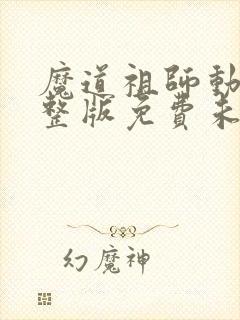 魔道祖師動
整版免費未
幻魔神